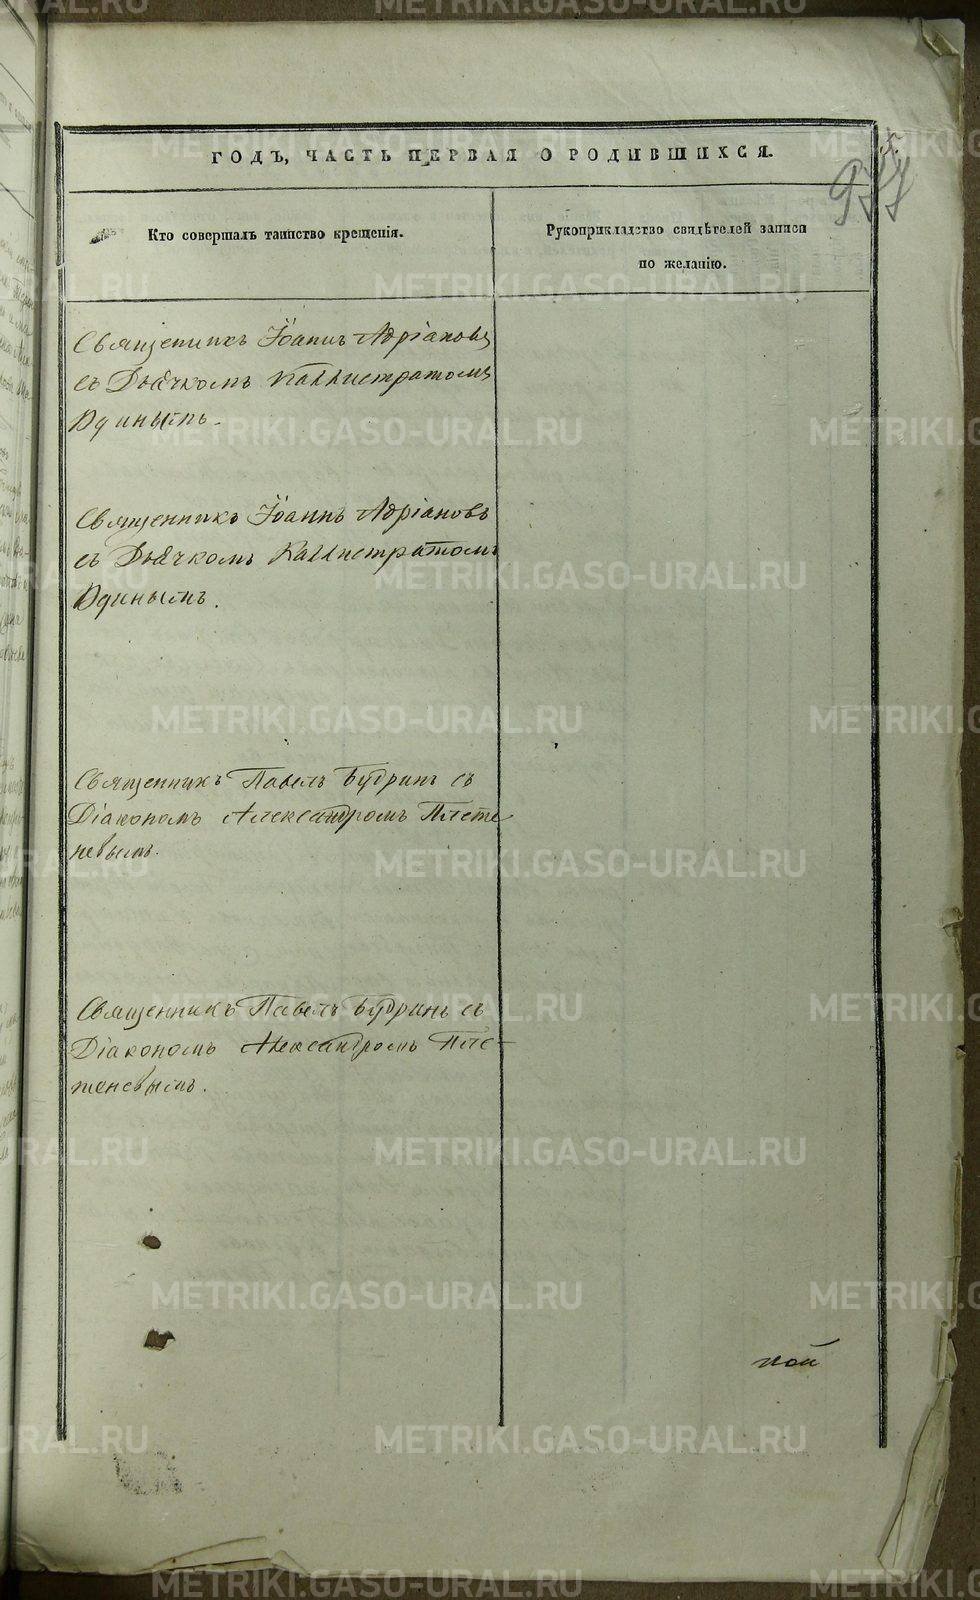 ГОДЪ, ЧАСТЬ ПЕРВАЯ О РОДИВШИХСЯ.
5.
Кто совершалъ таинство крещенія.
Рукоприкладство свидѣтелей записи
по желанію.
Священникъ Іоаннъ Адріановъ
съ Дьячкомъ Каллистратомъ
Удинымъ.
Священникъ Іоаннъ Адріановъ
съ Дьячкомъ Каллистратомъ
Удинымъ.
Священникъ Павелъ Будринъ съ
Діакономъ Александромъ Плете
невымъ.
Священникъ Павелъ Будринъ съ
Діакономъ Александромъ Пле-
теневымъ.
кой
METRIKI.GASO-URAL.RU